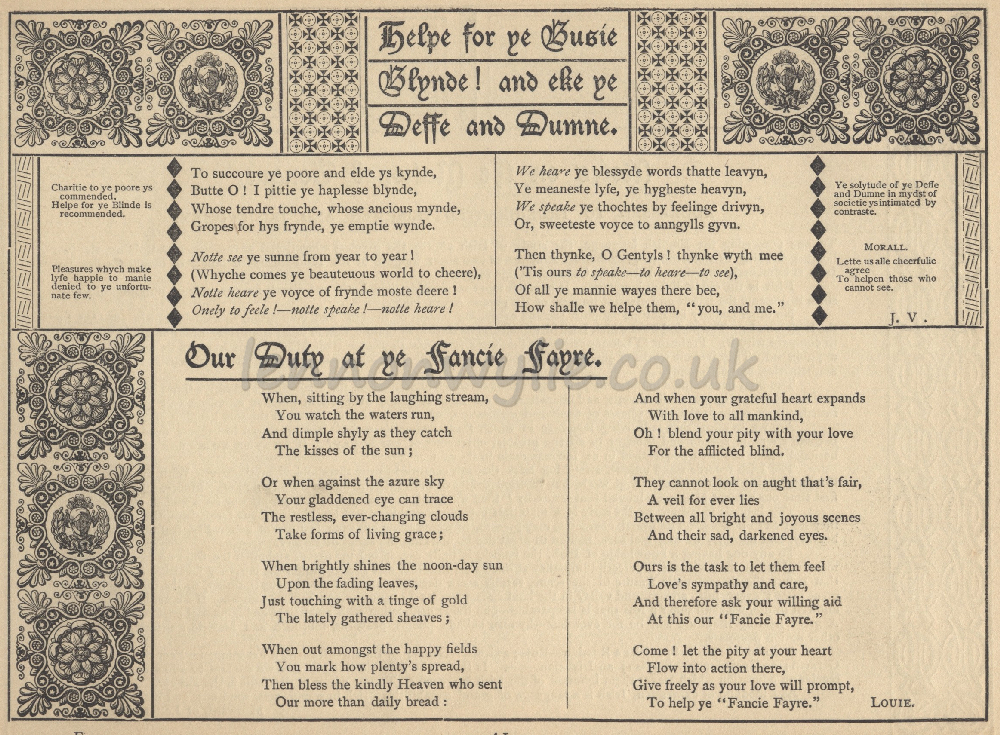 Helpe for ye Busie
Blynde! and eke ye
Deffe and Dumne.
Charitie to ye poore ys
commended.
Helpe for ye Blinde is
recommended.
Pleasures whych make
lyfe happie to manie
denied to ye unfortu-
nate few.
To succoure ye poore and elde ys kynde,
Butte O! I pittie ye haplesse blynde,
Whose tendre touche, whose ancious mynde,
Gropes for hys frynde, ye emptie wynde.
Notte see ye sunne from year to year!
(Whyche comes ye beauteuous world to cheere),
Notte heare ye voyce of frynde moste deere!
Onely to feele!—notte speake!—notte heare!
We heare ye blessyde words thatte leavyn,
Ye meaneste lyfe, ye hygheste heavyn,
We speake ye thochtes by feelinge drivyn,
Or, sweeteste voyce to anngylls gyvn.
Then thynke, O Gentyls! thynke wyth mee
('Tis ours to speake—to heare—to see),
Of all ye mannie wayes there bee,
How shalle we helpe them, "you, and me."
Ye solytude of ye Deffe
and Dumne in mydst of
societie ys intimated by
contraste.
MORALL.
Lette us alle cheerfullie
agree
To helpen those who
cannot see.
J. V.
Our Duty at ye Fancie Fayre.
When, sitting by the laughing stream,
You watch the waters run,
And dimple shyly as they catch
The kisses of the sun;
Or when against the azure sky
Your gladdened eye can trace
The restless, ever-changing clouds
Take forms of living grace;
When brightly shines the noon-day sun
Upon the fading leaves,
Just touching with a tinge of gold
The lately gathered sheaves;
When out amongst the happy fields
You mark how plenty's spread,
Then bless the kindly Heaven who sent
Our more than daily bread:
And when your grateful heart expands
With love to all mankind,
Oh! blend your pity with your love
For the afflicted blind.
They cannot look on aught that's fair,
A veil for ever lies
Between all bright and joyous scenes
And their sad, darkened eyes.
Ours is the task to let them feel
Love's sympathy and care,
And therefore ask your willing aid
At this our "Fancie Fayre."
Come! let the pity at your heart
Flow into action there,
Give freely as your love will prompt,
To help ye "Fancie Fayre."
LOUIE.
lennonwylie.co.uk